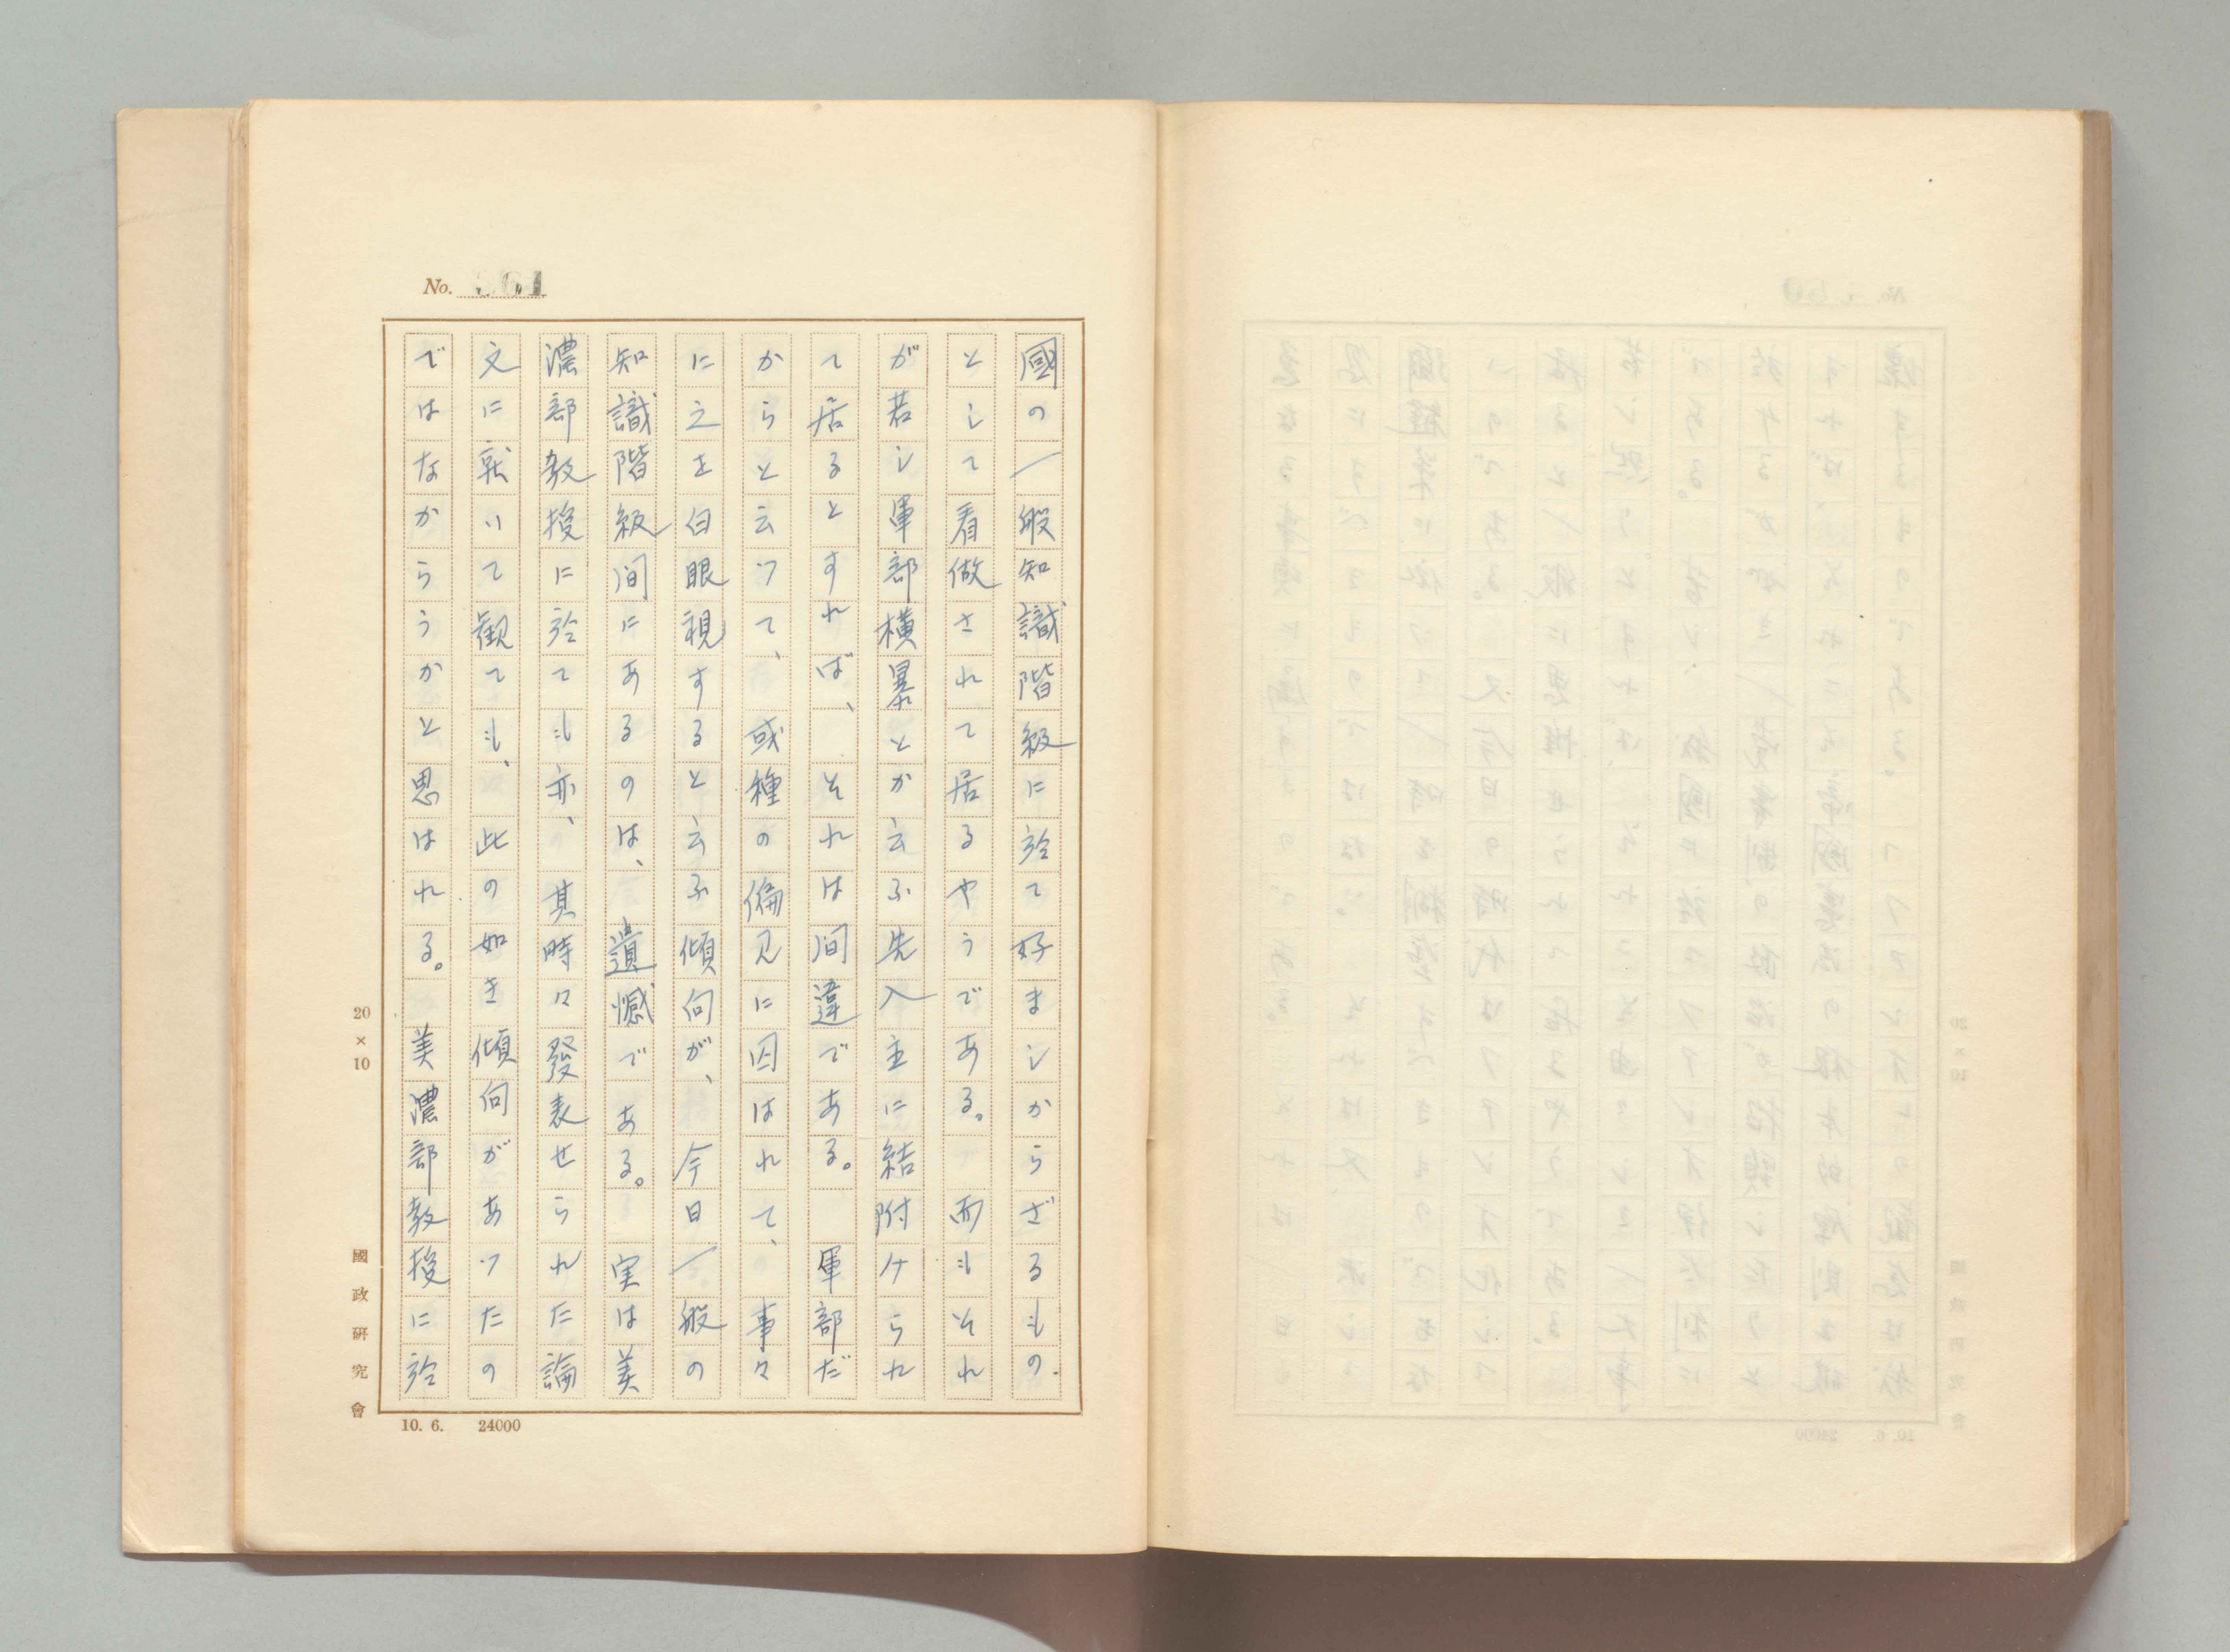 No. 61
國の一般知識階級に於て好ましからざるもの
として看做されて居るやうである。而もそれ
が若し軍部橫暴とか云ふ先入主に結附けられ
て居るとすれば、それは间違である。軍部だ
からと云つて、或種の偏見に因はれて、事々
に之を白眼視すると云ふ傾向が、今日一般の
知識階級间にあるのは、遺憾である。実は美
濃部教授に於ても亦、其時々發表せられた論
文に就いて観ても、此の如き傾向があつたの
ではなからうかと思はれる。美濃部教授に於
20×10
國政研究會
10. 6. 24000